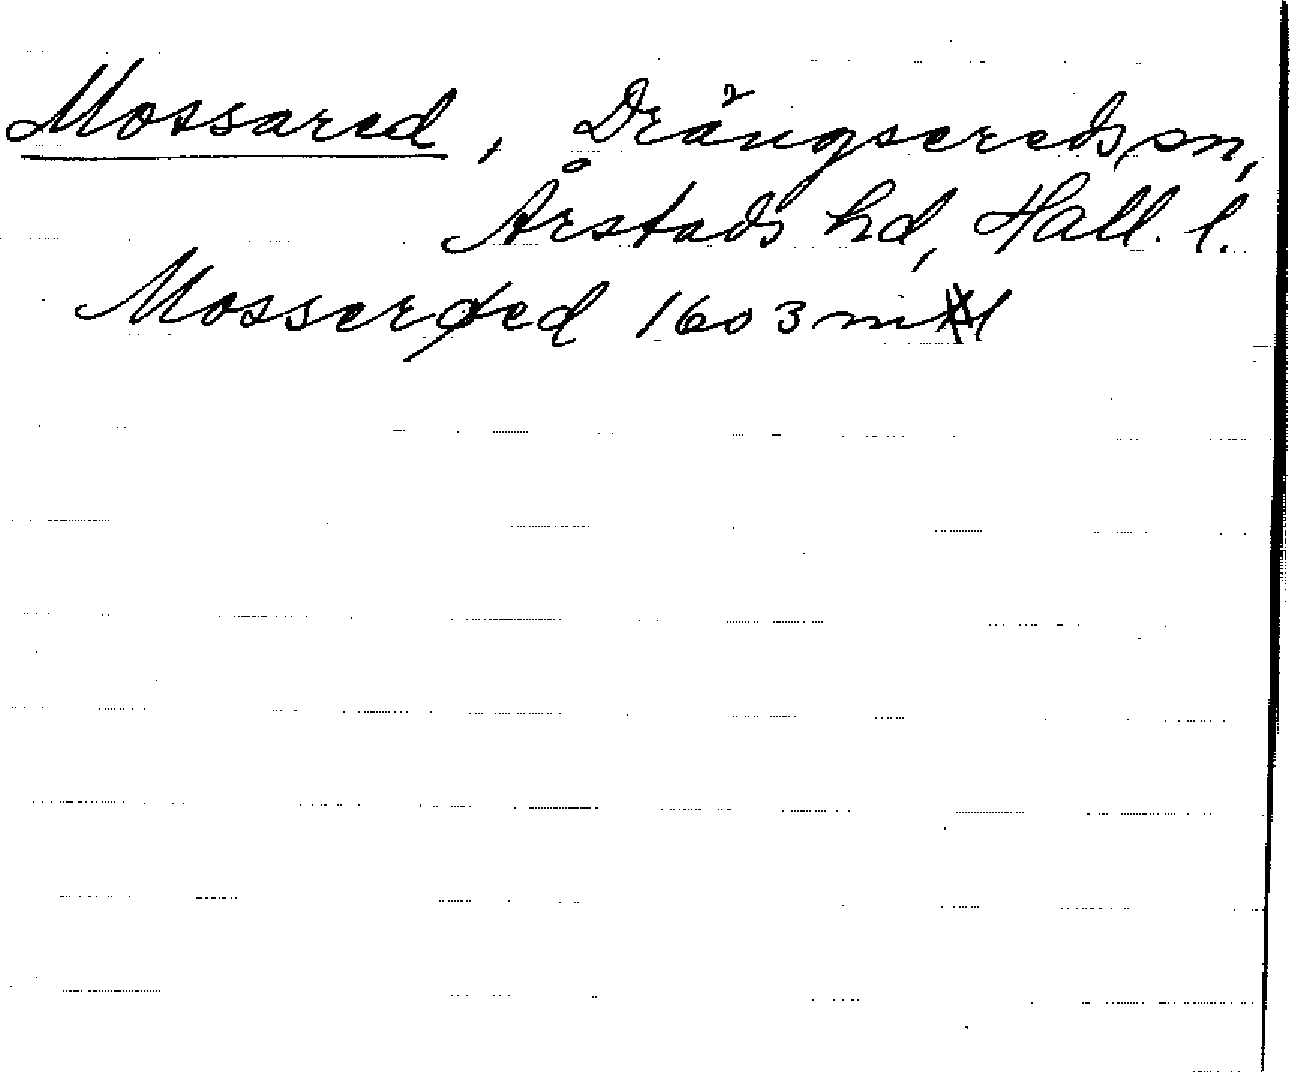 Mossared, Drängsereds sn,
Årstads hd, Hall. l.
Mosserød 1603